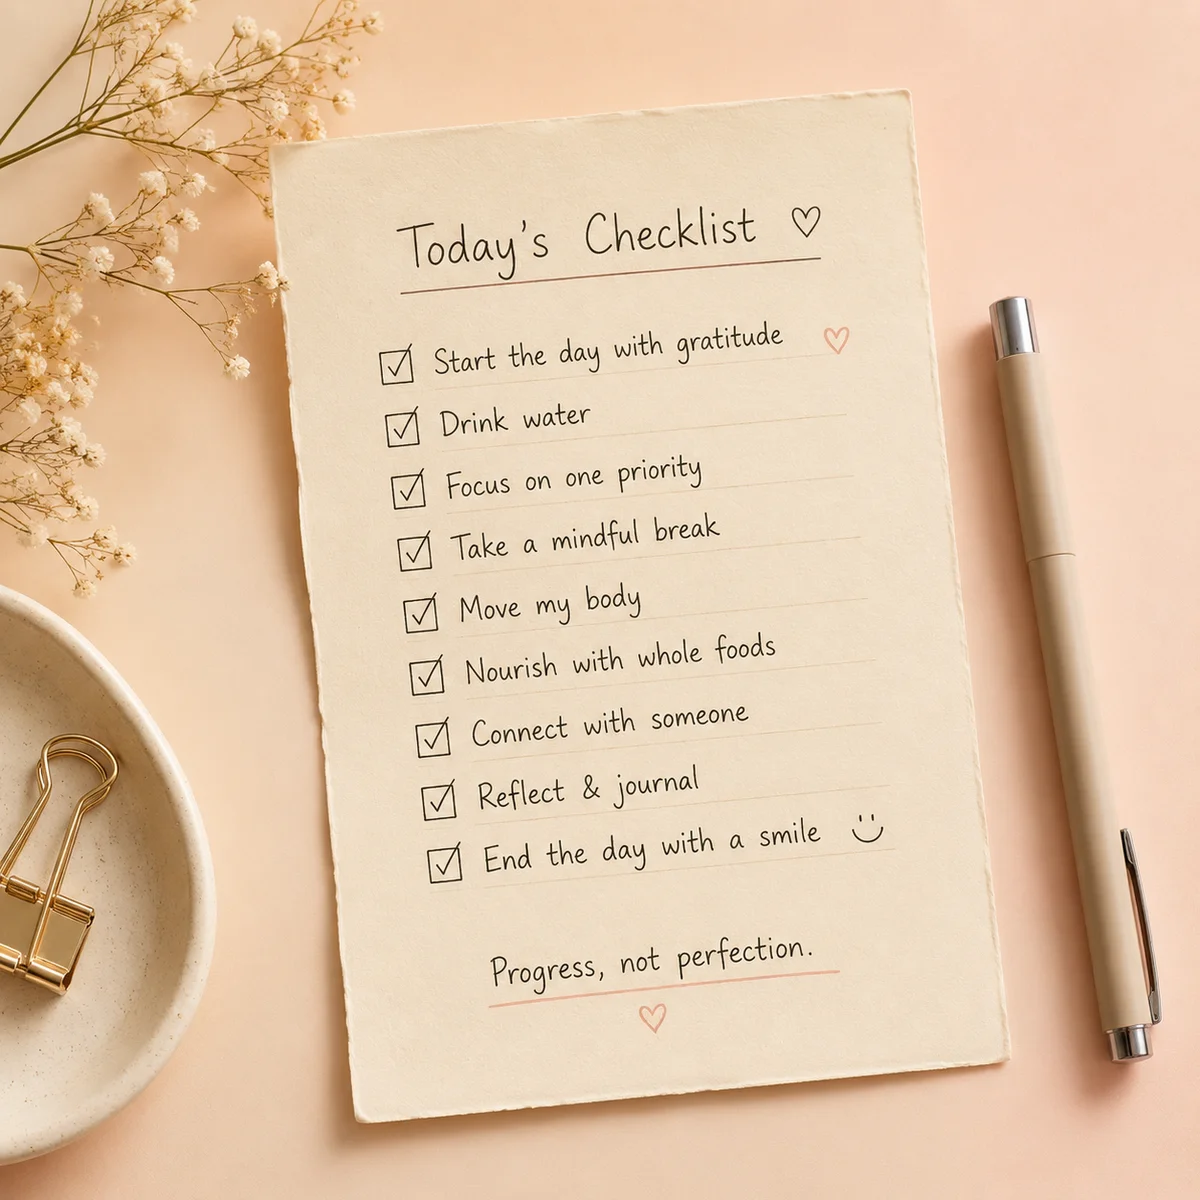 Today's Checklist ♡
Start the day with gratitude ♡
Drink water
Focus on one priority
Take a mindful break
Move my body
Nourish with whole foods
Connect with someone
Reflect & journal
End the day with a smile
Progress, not perfection.